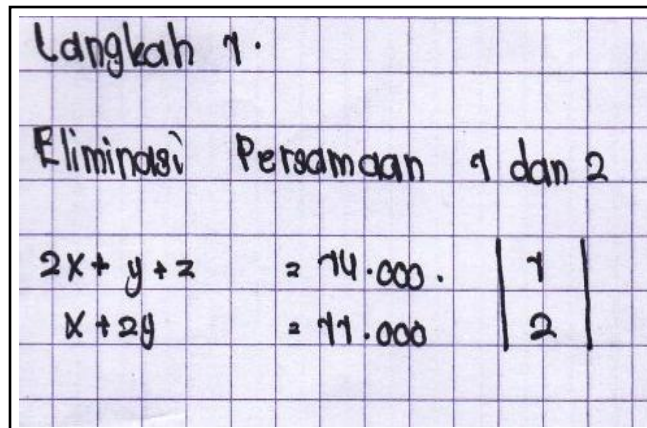 Langkah 1.
Eliminasi Persamaan 1 dan 2
2x + y + z = 14.000. | 1 |
x + 2y = 11.000 | 2 |